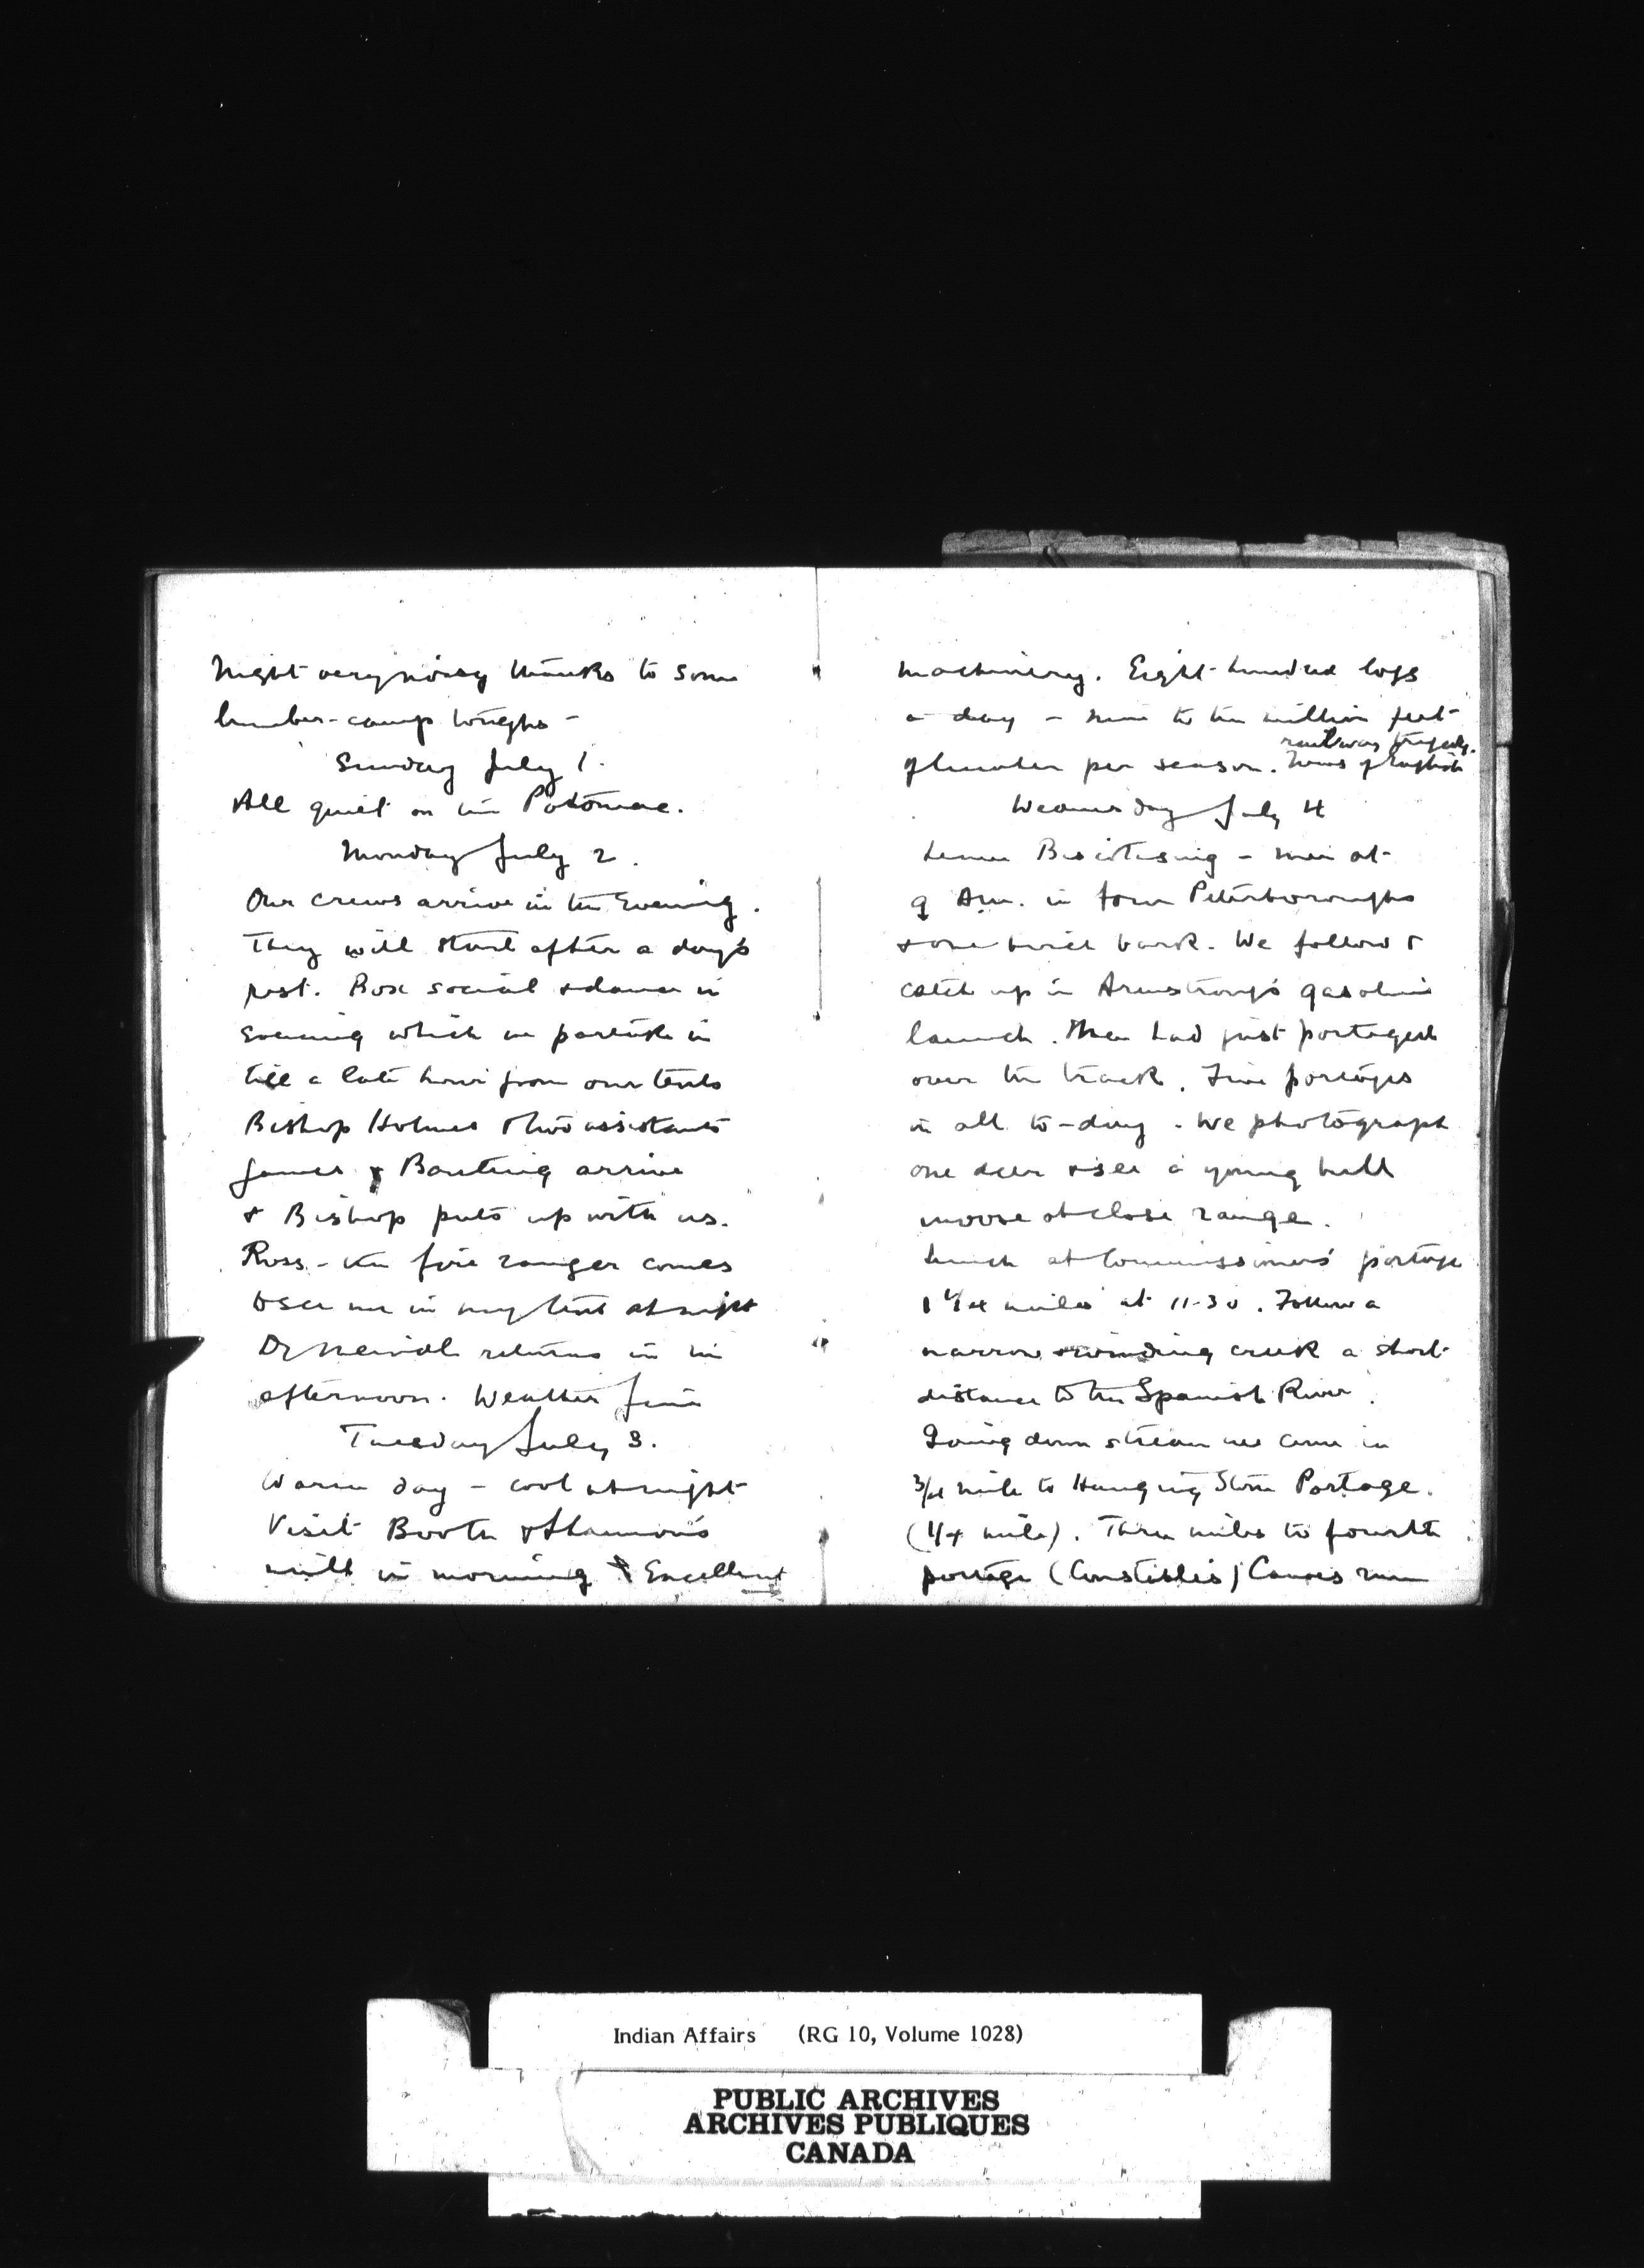 Night very noisy thanks to some
lumber-camp toughs -
Sunday July 1.
All quiet on the Potomac.
Monday July 2.
Our crews arrive in the Evening.
They will start after a day's
rest. Box social & dance in
evening which we partake in
till a late hour from our tents
Bishop Holmes & two assistants
James & Banting arrive
& Bishop puts up with us.
Ross - the fire ranger comes
to see me in my tent at night
Dr Meindl returns in the
afternoon. Weather fine
Tuesday July 3.
Warm day - cool at night
Visit Booth & Shannon's
mill in morning Excellent
machinery. Eight hundred logs
a day - nine to ten million feet
railway tragedy.
of lumber per season. News of English
Wednesday July 4
Leave Biscotasing - men at
9 A.m. in four Peterboroughs
& one birch bark. We follow &
catch up in Armstrong's gasoline
launch. Men had just portaged
over the track. Five portages
in all to-day. We photograph
one deer & see a young bull
moose at close range.
Lunch at Commissioners' portage
1 1/4 miles at 11-30. Follow a
narrow winding creek a short
distance to the Spanish River.
Going down stream we come in
3/4 mile to Hanging Stone Portage.
(1/4 mile). Three miles to fourth
portage (Constables) Canoes run
Indian Affairs (RG 10, Volume 1028)
PUBLIC ARCHIVES
ARCHIVES PUBLIQUES
CANADA